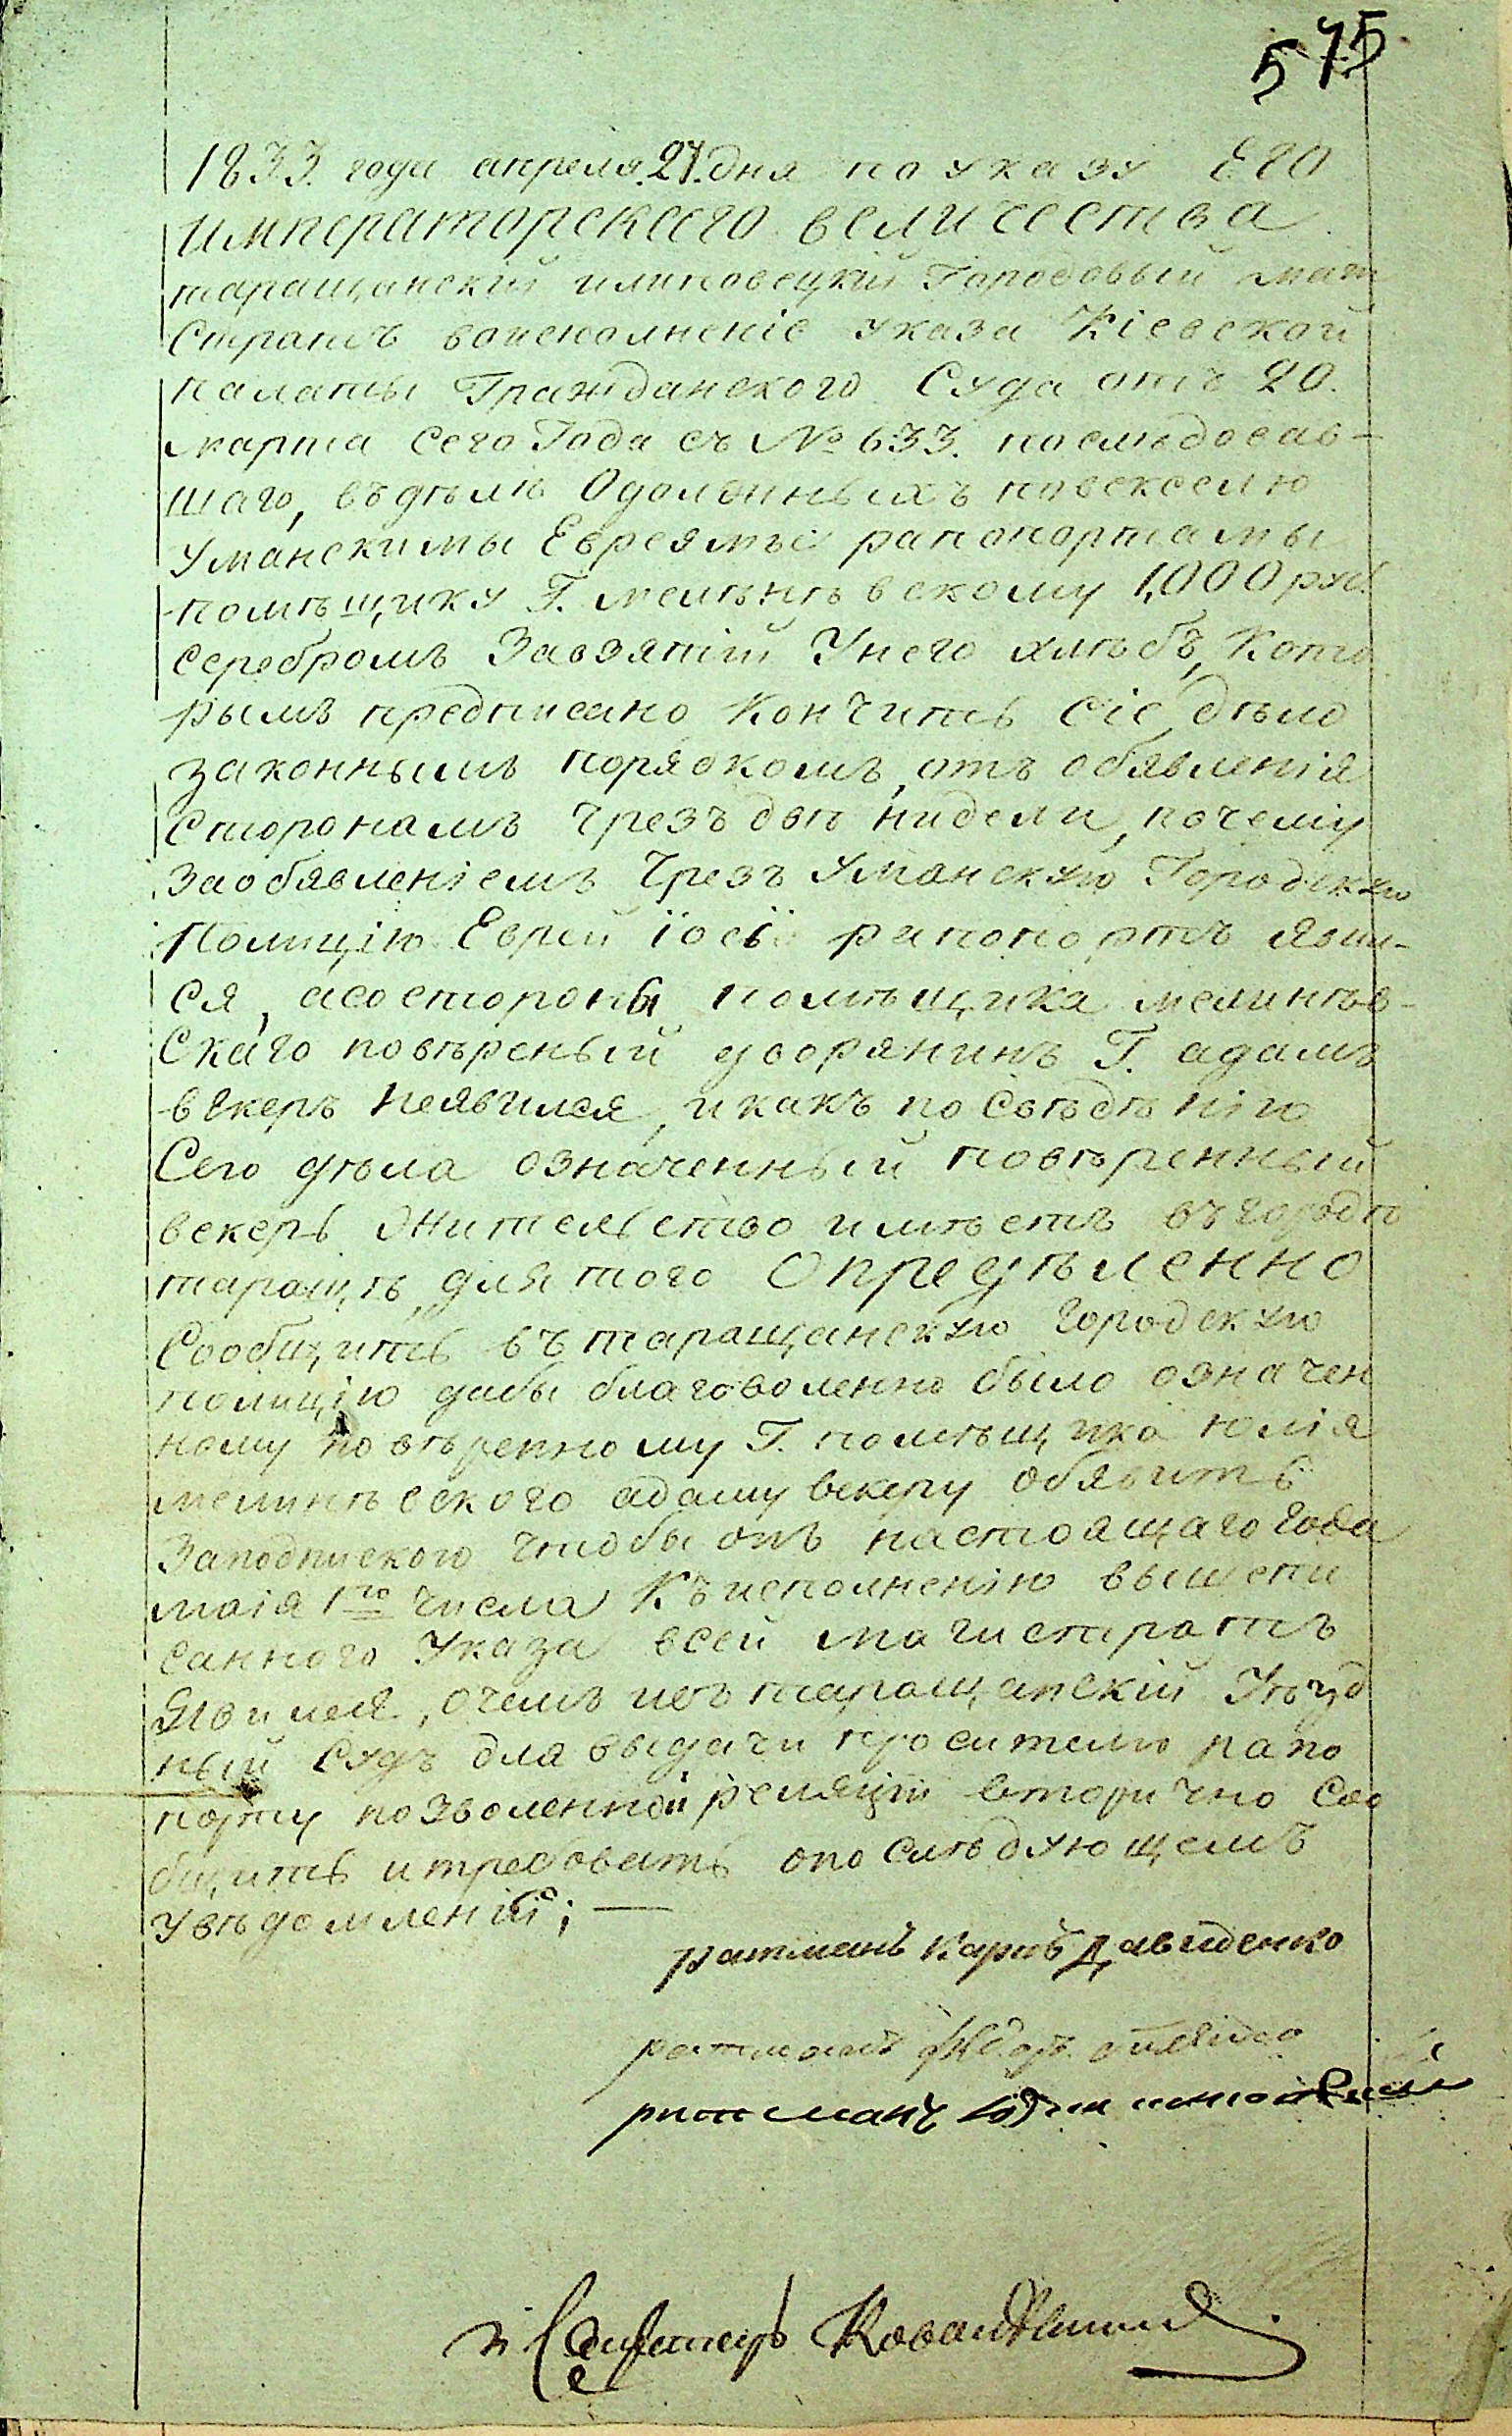 575
1833. года апреля 27. дня по указу Его
императорского величества
таращанский и липовецкий Городовый маги
Стратъ воисполненіе указа Кіевской
палаты Гражданского Суда отъ 20.
марта сего Года съ № 633. последовав-
шаго, въделѣ Одолжныхъ повекселю
Уманскимы Евреямы рапопортамы
помѣщику Г. 1,000 руб.
серебромъ Завзятій Унего хлѣбъ, Кото
рымъ предписано Кончить сіе дѣло
законнымъ порядкомъ, отъ обявленія
сторонамъ Чрезъ двѣ нидели, почему
Заобявленіемъ Чрезъ Уманскую Городскую
Полицію Еврей рапопортъ Яви-
ся, асостороны помѣщика мелинѣв-
Скаго повѣреный дворянинъ Г. адамъ
векеръ Неявился, икакъ по Свѣдѣнію
Сего дѣла означенный повѣренный
векеръ жительство имѣетъ въгородѣ
таращѣ, длятого Опредѣленно
Сообщить въ таращанскую Городскую
полицію дабы благоволенно было означен
ному повѣренному Г. помѣщика юлія
мелинѣвского адаму векеру обявить
Заподпискою чтобы онъ настоящаго Года
маія 1го числа Къисполненію вышепи
санного Указа всей магистратъ
Явился, очемъ ивъ таращанскій Уѣзд
ный Судъ для выдачи просителю рапо
порту позволенной реляціи вторично Соо
бщить итребовать опослѣдующемъ
увѣдомленій; —
ратманъ Карпъ Давиденко
ратманъ
ратманъ
Секретарь